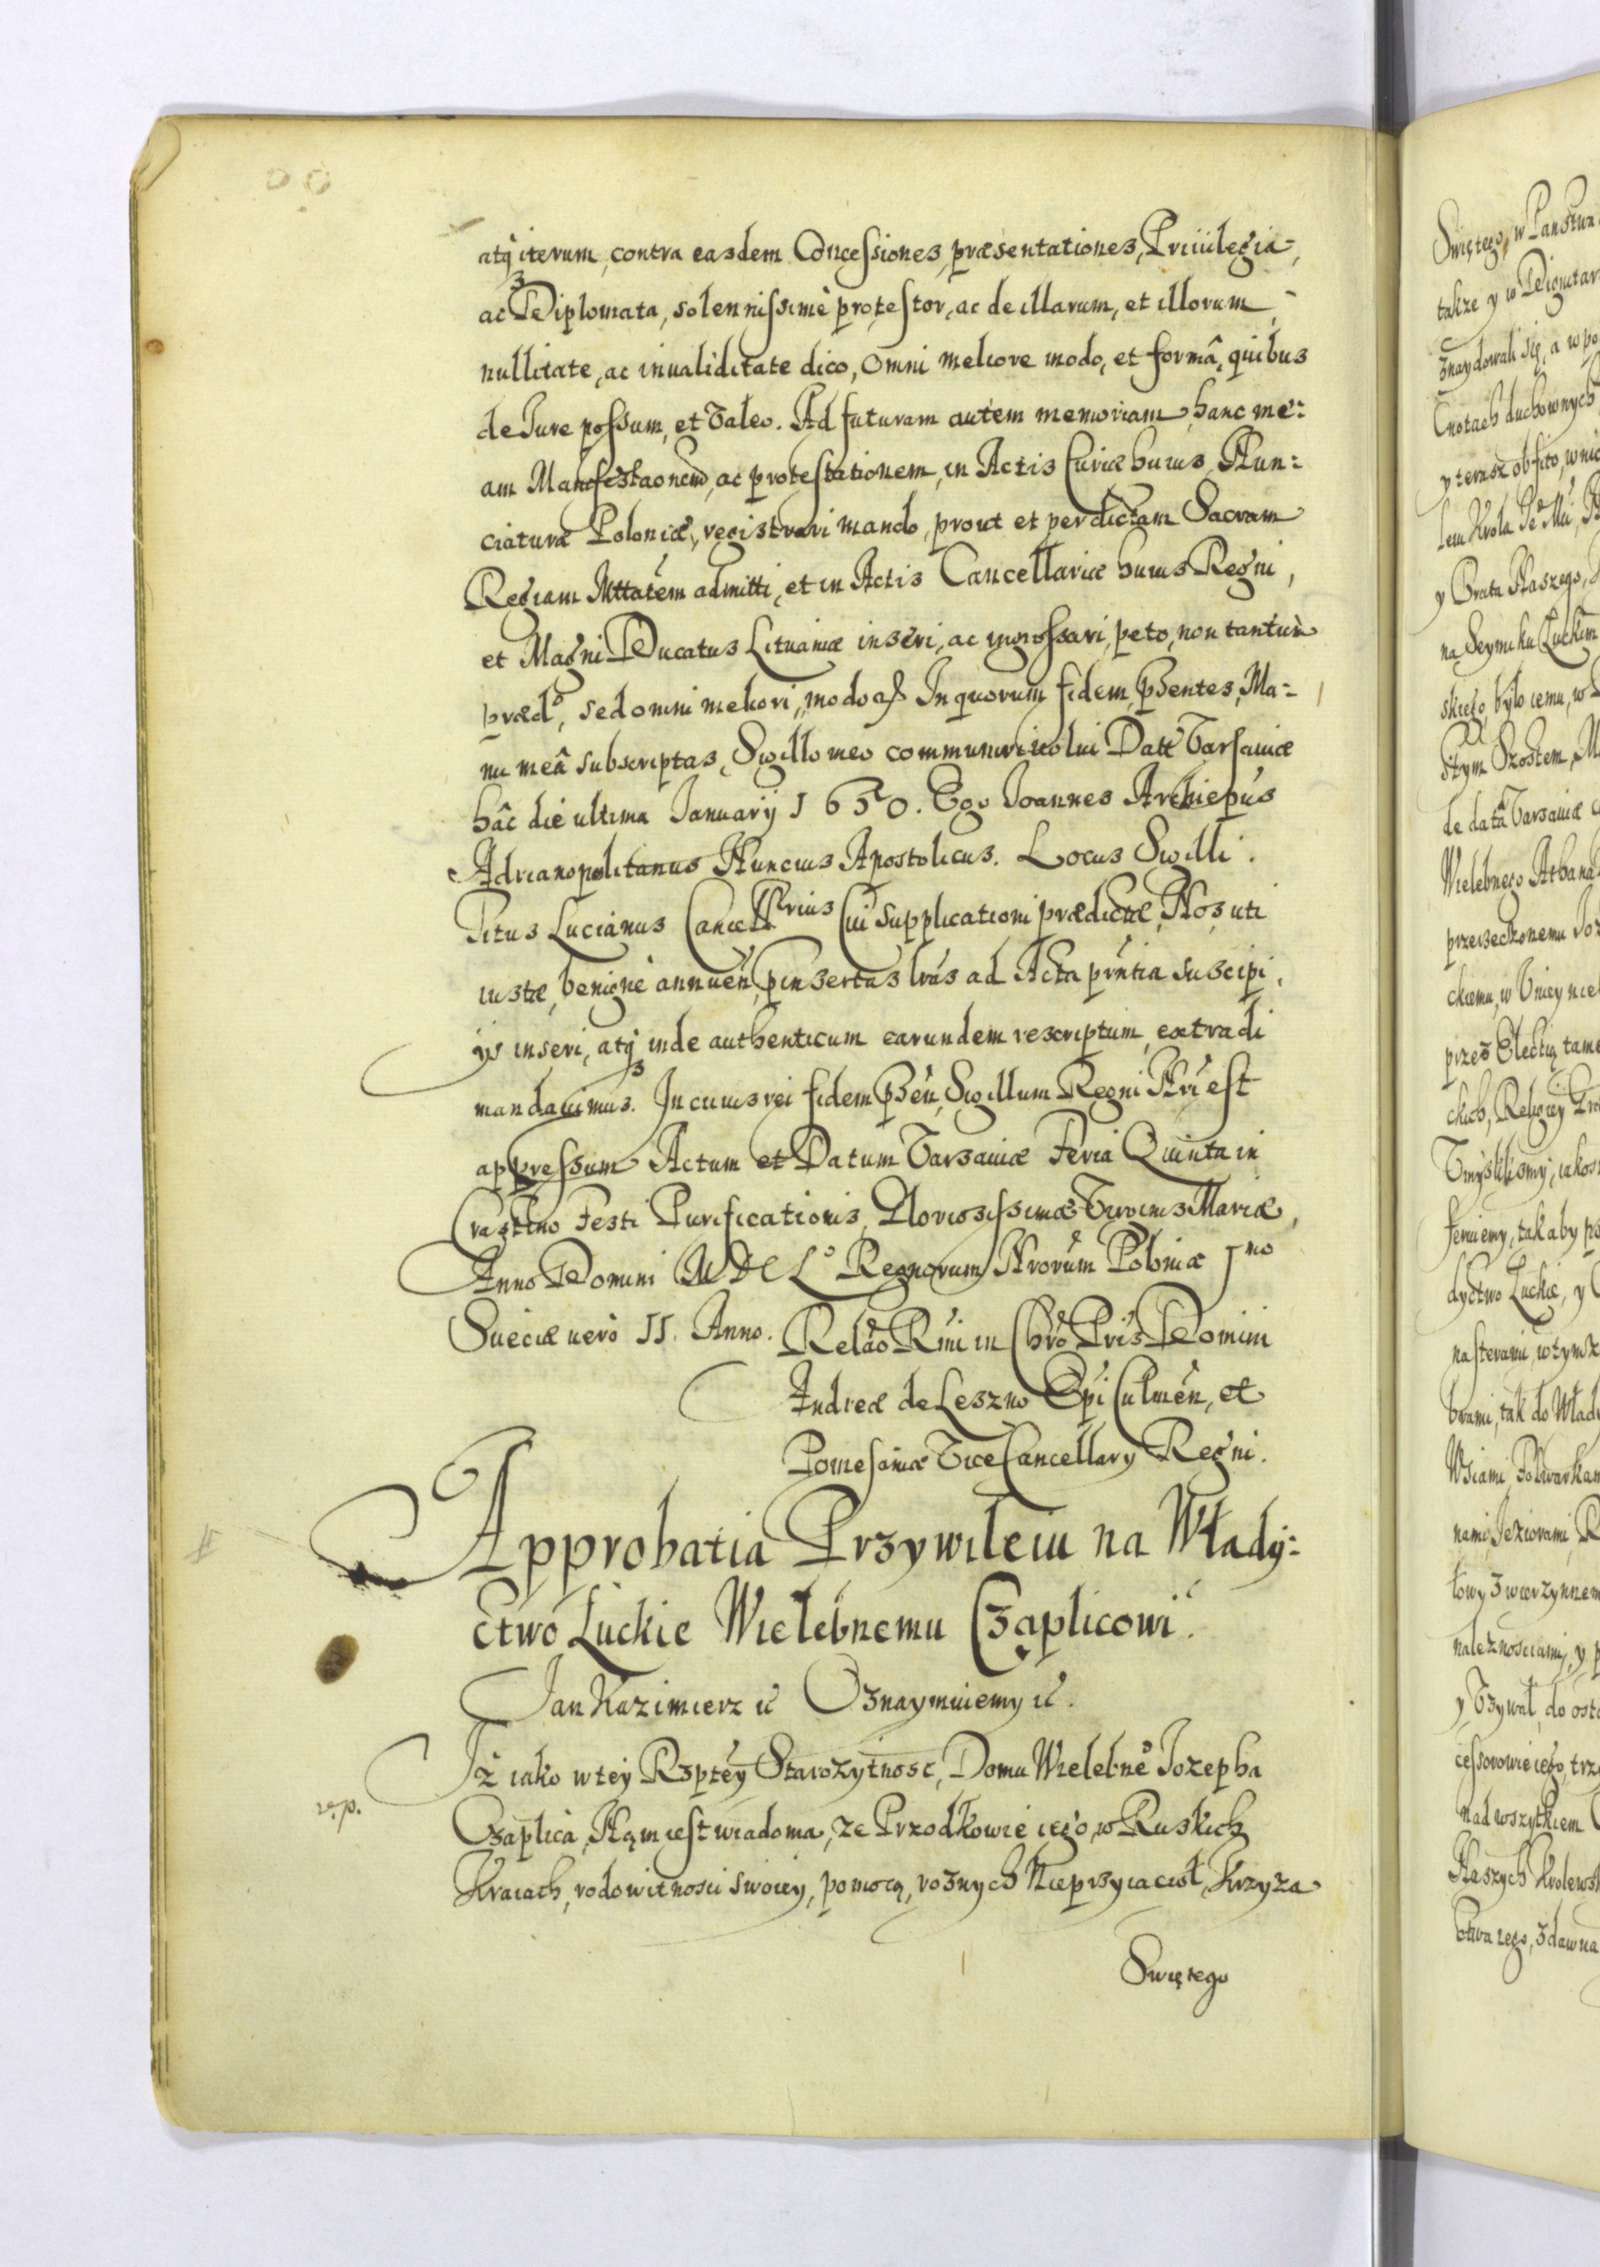 atq3 iterum, contra easdem Concessiones, præsentationes, Priuilegia,
ac Diplomata, solennissimè protestor, ac de illarum, et illorum
nullitate, ac inualiditate dico, omni meliore modo, et formâ, quibus
de Iure possum, et Valeo. Ad futuram autem memoriam, hanc me:
am Manifestaonem, ac protestationem, in Actis Curiæ huius Nun:
ciaturæ Poloniæ, registrari mando, prout et per dictam Sacram
Regiam Mttatem admitti, et in Actis Cancellariæ huius Regni,
et Magni Ducatus Lituaniæ inseri, ac ingrossari, peto, non tantum
prædo, sed omni meliori, modo In quorum fidem, pñtes, Ma:
nu meâ subscriptas, Sigillo meo communiri volui Datt Varsauiæ
hâc die ultima Ianuarij 1650. Ego Ioannes Archiepus
Adrianopolitanus Nuncius Apostolicus. Locus Sigilli.
Titus Lucianus Cancellrius Cui supplicationi prædictæ, Nos, uti
iustæ, benignè annuen, pinsertas lras ad Acta pñtia suscipi,
ijs inseri, atq3 inde authenticum earundem rescriptum, extradi
mandauimus. In cuius rei fidem pñtem Sigillum Regni Nri est
appressum Actum et Datum Varsauiæ Feria Quinta in
Crastino Festi Purificationis, Gloriosissimæ Virginis Mariæ,
Anno Domini M DC Lo Regnorum Nrorum Poloniæ 1mo
Sueciæ uerò II. Anno. Relao Rmi in Chro Pris Domini
Andreæ de Leszno Epi Culmen, et
Pomesaniæ Vice Cancellary Regni.
Approbatia Przywileiu na Włady:
ctwo Łuckie Wielebnemu Czaplicowi.
Jan Kazimierz ic Oznaymuiemy ic.
Iż iako w tey Rzptey Starożytnosc, Domu Wielebne Iozepha
rep.
Czaplica, Nam iest wiadoma, że Przodkowie iego, w Ruskich
Kraiach, rodowitnosci swoiey, pomocą, roznych Nieprzyiacioł, Krzyża
Swiętego
Swiętego, w Panstwa
takze y w Dignitar
znaydowali się, a w po
Cnotach duchownych
y teraz obfito, w nie
lem Krola Je Mci,
y Brata Naszego,
na Seymiku Łuckim
skiego, było iemu, w
stym Szostem, M
de data Varsauiæ
Wielebnego Athana
przerzeczonemu Ioz
ckiemu, w Vniey nie
przez Electią tame
ckich, Religiey Gre
Vmyslilismy, iakos
feruiemy, tak aby po
dyctwo Łuckie, y
nasterami, w tymz
brami, tak do Wład
Wsiami, Folwarkam
nami, Jeziorami, R
łowy Zwierzynnem
należnosciami, y p
y Vzywał, do osta
cessorowie iego, trz
nad wszytkiem
Naszych Krolewsk
ctwa tego, zdawna